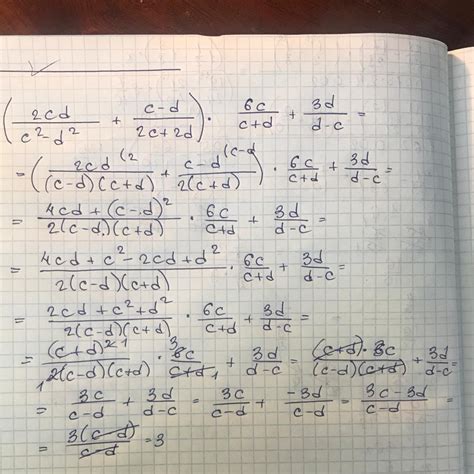 (2cd/(c²-d²) + (c-d)/(2c+2d)) · 6c/(c+d) + 3d/(d-c) =
= (2cd⁽²/((c-d)(c+d)) + c-d⁽ᶜ⁻ᵈ/(2(c+d))) · 6c/(c+d) + 3d/(d-c) =
= (4cd+(c-d)²)/(2(c-d)(c+d)) · 6c/(c+d) + 3d/(d-c) =
= (4cd+c²-2cd+d²)/(2(c-d)(c+d)) · 6c/(c+d) + 3d/(d-c) =
= (2cd+c²+d²)/(2(c-d)(c+d)) · 6c/(c+d) + 3d/(d-c) =
= (c+d)²/(2(c-d)(c+d)) · 6c/(c+d) + 3d/(d-c) = ((c+d)·3c)/((c-d)(c+d)) + 3d/(d-c) =
= 3c/(c-d) + 3d/(d-c) = 3c/(c-d) + -3d/(c-d) = (3c-3d)/(c-d) =
= 3(c-d)/(c-d) = 3